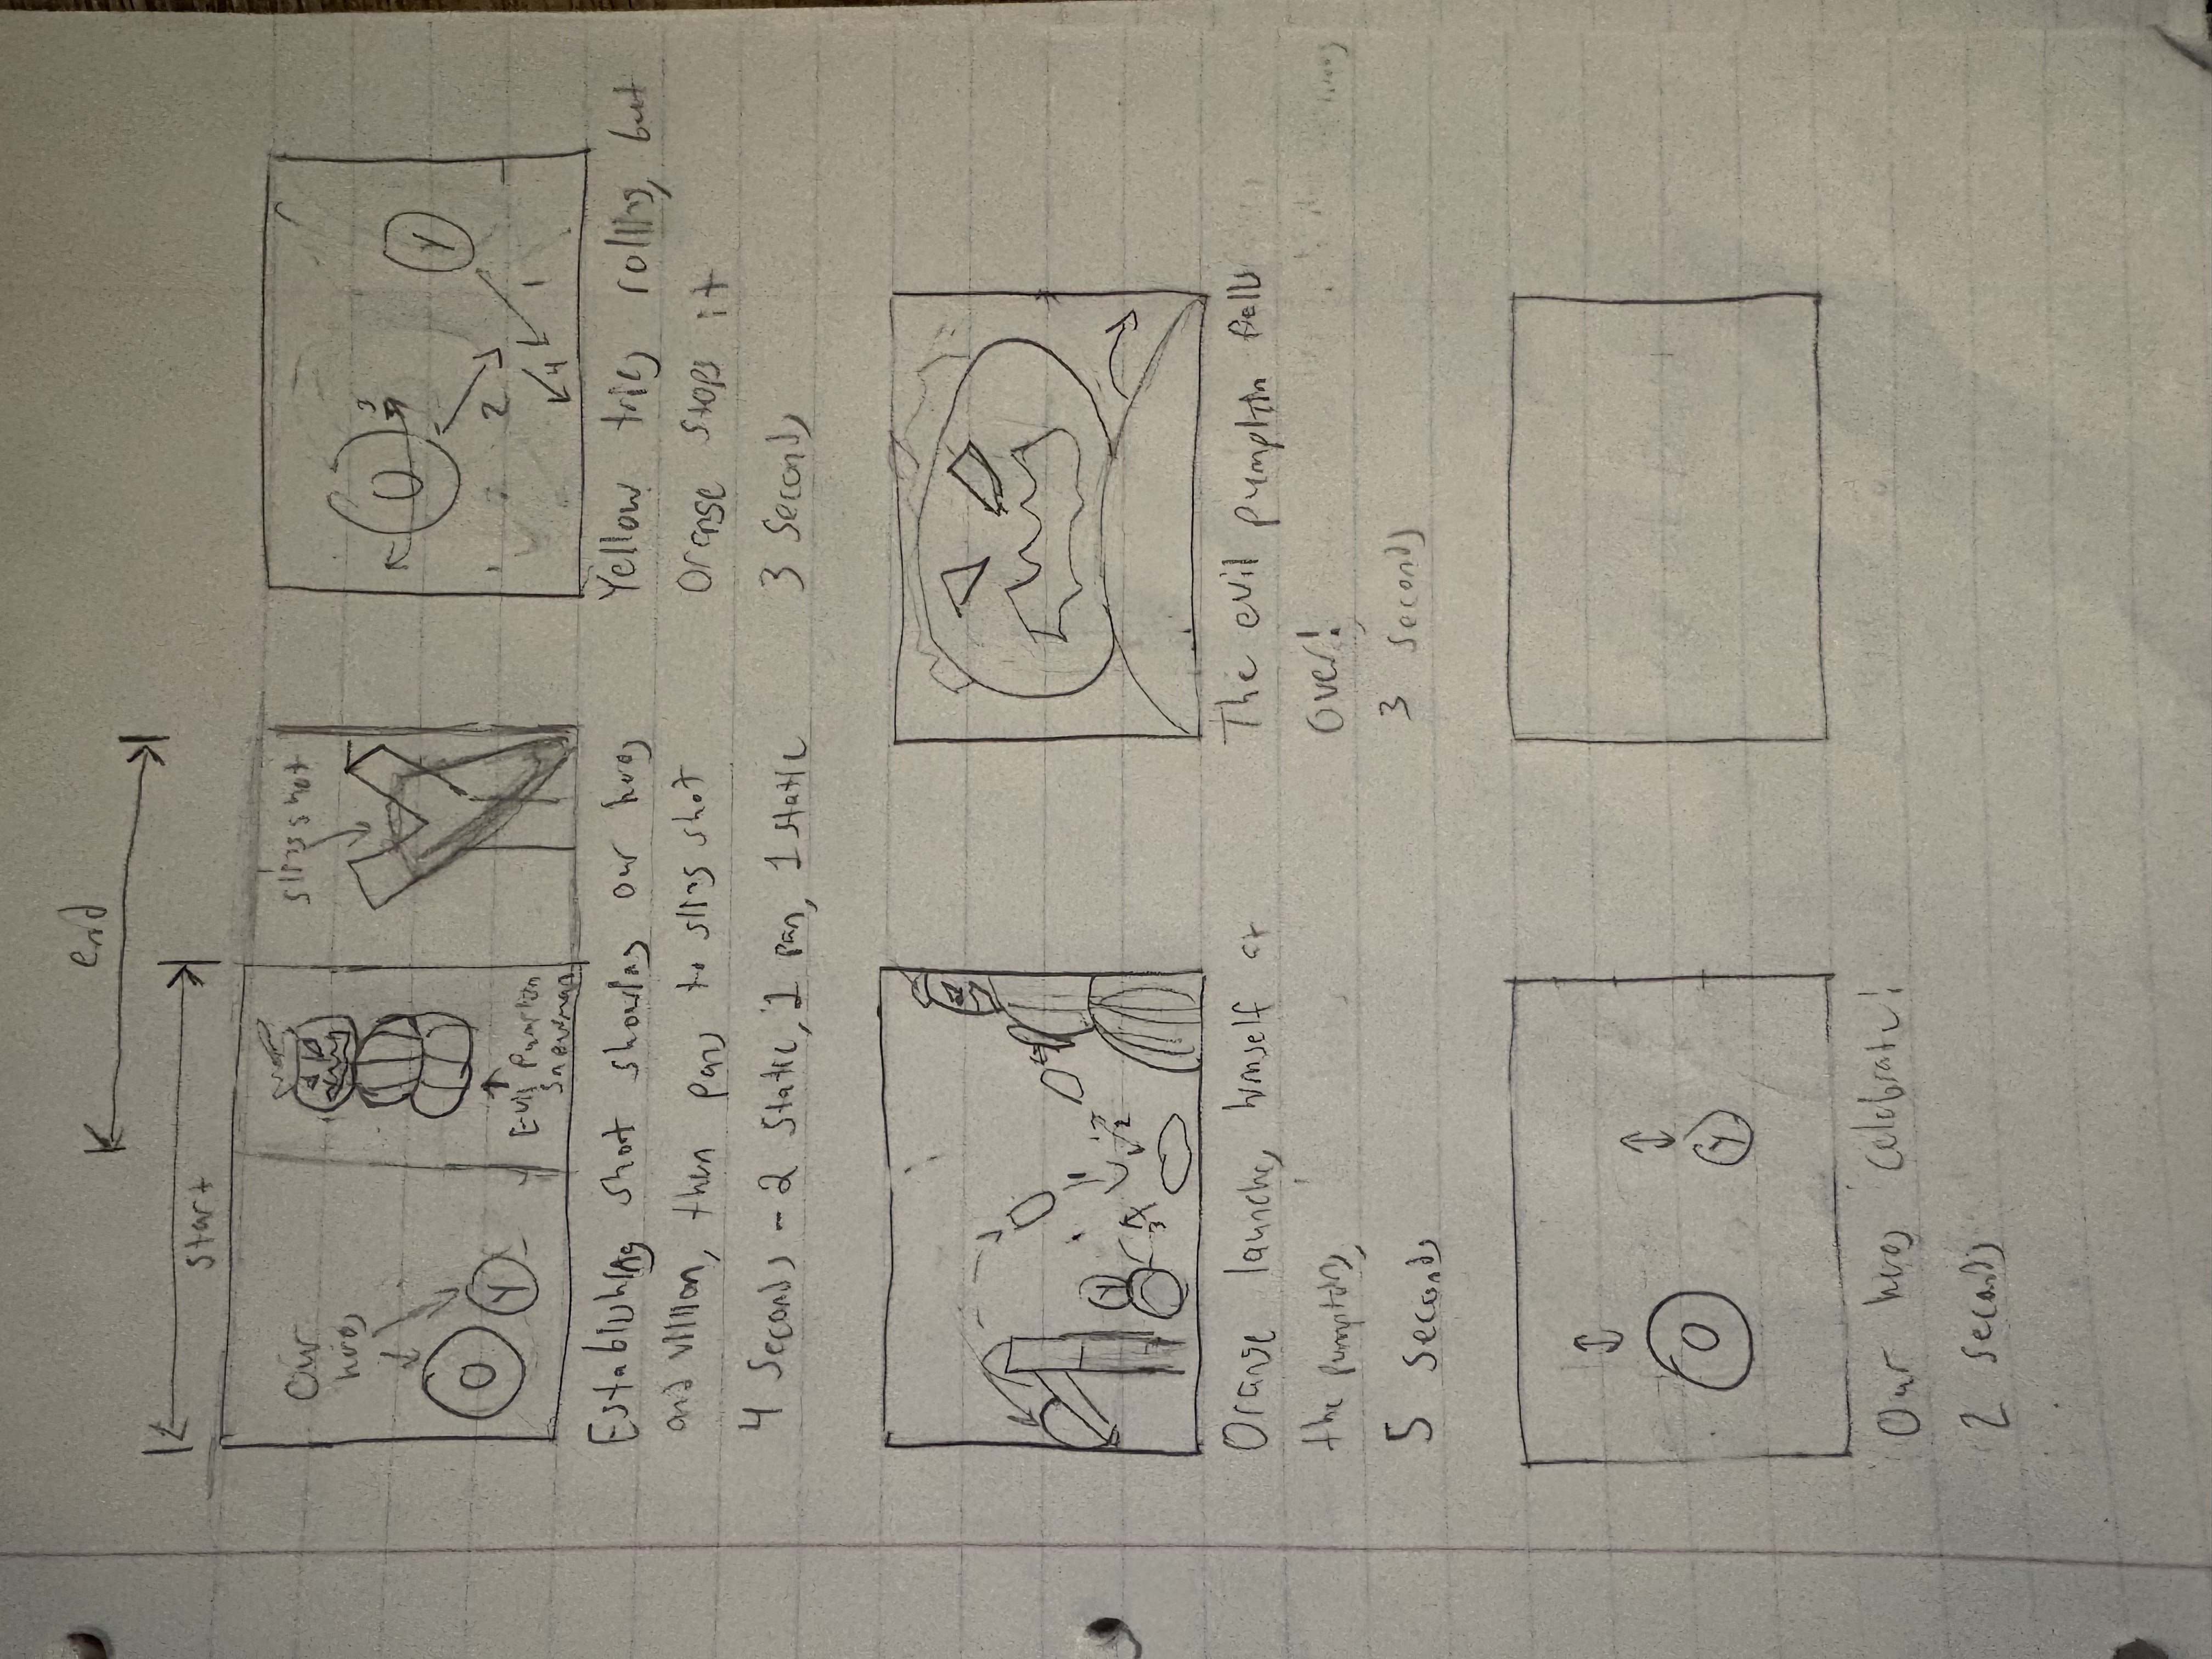 end
start
Our
heros
O
Y
Evil Pumpkin
Snowman
sling shot
O
Y
3
2
1
4
Establishing shot showing our heros
and villian, then pans to sling shot
4 Seconds - 2 Static, 1 pan, 1 static
Yellow tries rolling, but
Orange stops it
3 Seconds
Y
1
2
3
Orange launches himself at
the pumpkins,
5 Seconds
The evil pumpkin falls
over!
3 Seconds
O
Y
Our heros celebrate!
2 seconds